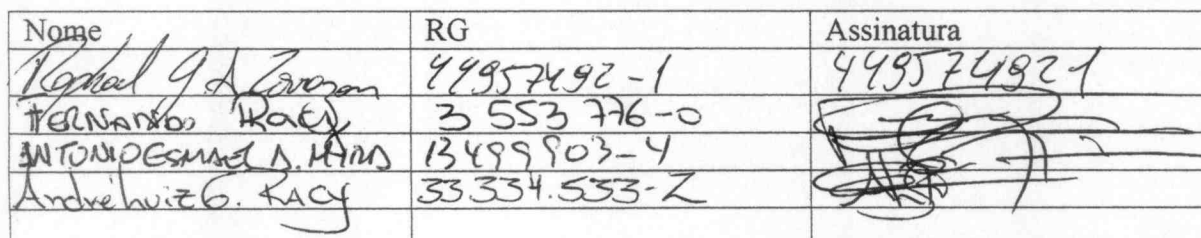 Nome RG Assinatura
Raphael G A 44957492-1 449574921
FERNANDO RACY 3 553 776-0
ANTONIO ESMAEL A. 13499903-4
André Luiz G. RACY 33.334.533-2